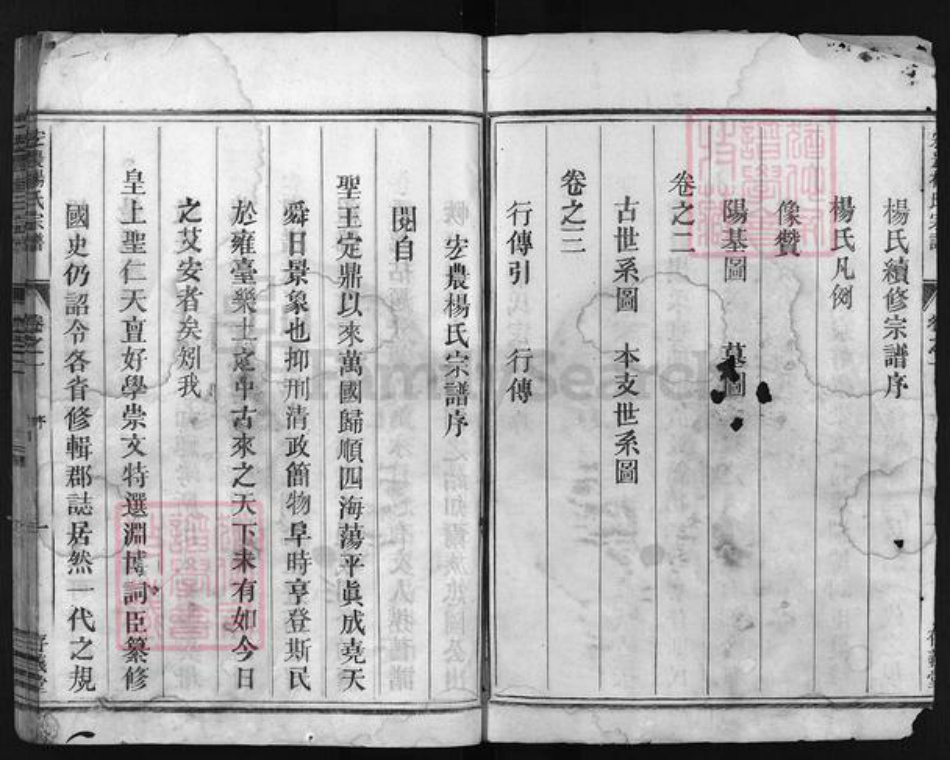 楊氏續修宗譜序
楊氏凡例
像贊
陽基圖 墓圖
卷之二
古世系圖 本支世系圖
卷之三
行傳引 行傳
宏農楊氏宗譜序
閱自
聖王定鼎以來萬國歸順四海蕩平眞成堯天
舜日景象也抑刑清政簡物阜時亨登斯民
於雍臺樂土之中古來之天下未有如今日
之艾安者矣矧我
皇上聖仁天亶好學崇文特選淵博詞臣纂修
國史仍詔令各省修輯郡誌居然一代之規
宏農楊氏宗譜
卷之一
序
一
存義堂